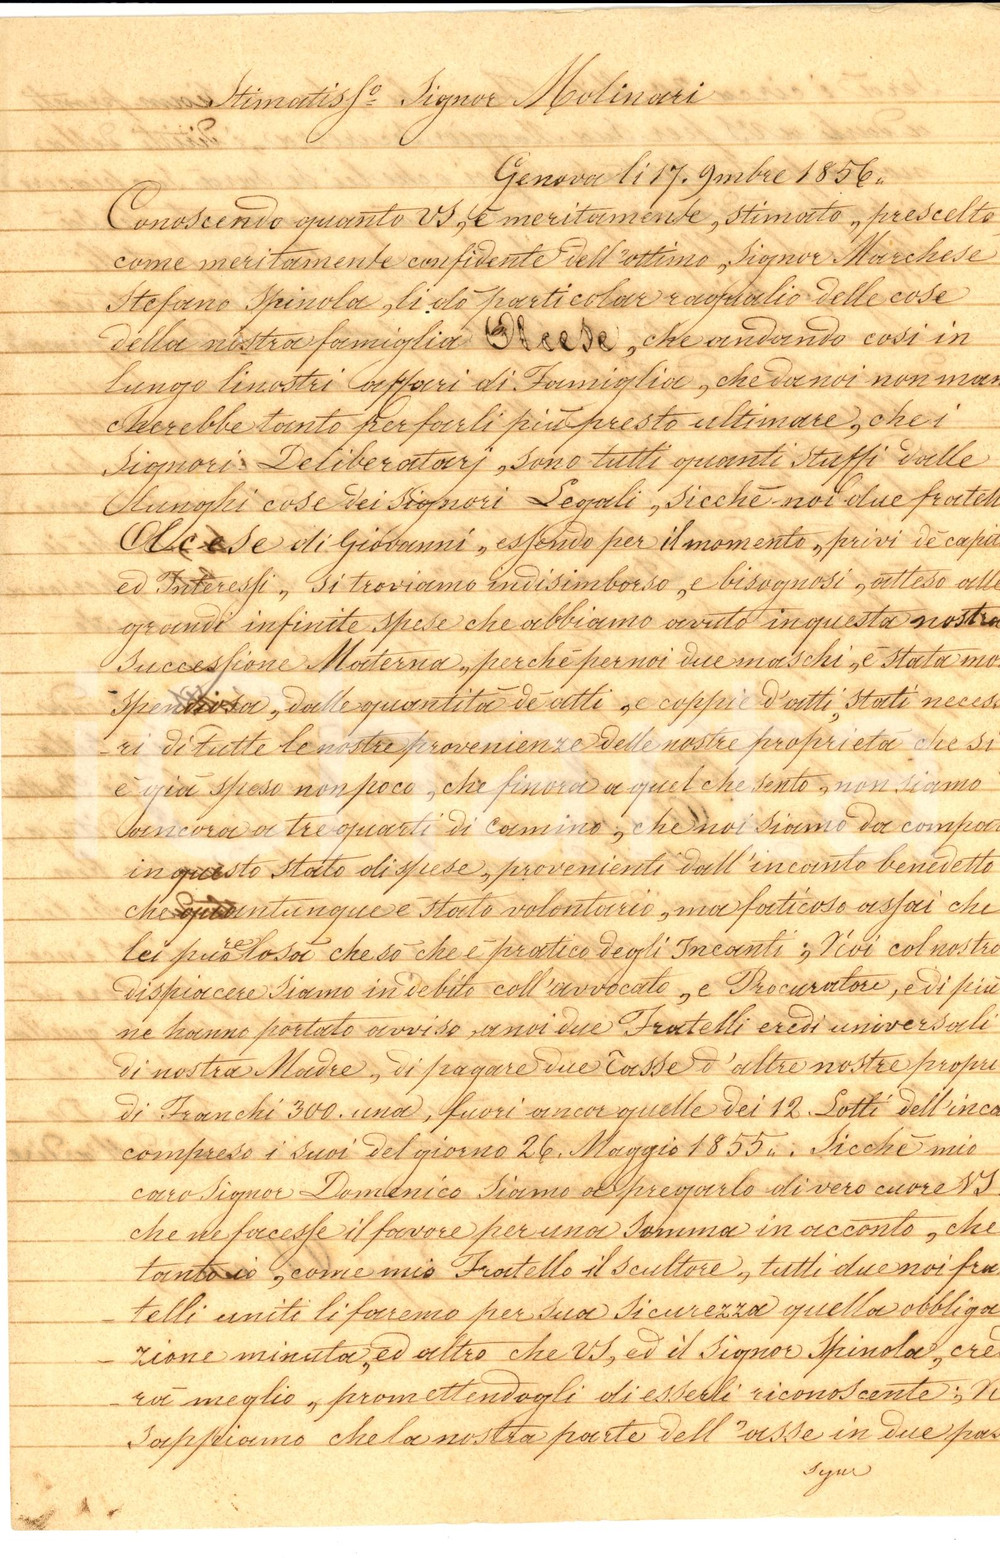 Stimatisso Signor Molinari
Genova li 17. 9mbre 1856.
Conoscendo quanto VS, è meritamente, stimato, prescelto
come meritamente confidente dell'ottimo, Signor Marchese
Stefano Spinola, li dò particolar raguaglio delle cose
della nostra famiglia Olcese, che andando cosi in
lungo li nostri affari di Famiglia, che da noi non man
cherebbe tanto per farli più presto ultimare, che i
Signori Deliberatarj, sono tutti quanti stuffi dalle
lunghi cose dei Signori Legali, sicchè noi due fratel
Olcese di Giovanni, essendo per il momento, privi dè capit
ed Interessi, si troviamo in disimborso, e bisognosi, atteso alle
grandi infinite spese che abbiamo avuto in questa nostra
successione Materna, perchè per noi due maschi, è stata mo
spendiosa, dalle quantità dè atti, e coppie d'atti, stati necess
-ri di tutte le nostre provenienze delle nostre proprietà che si
è già speso non poco, che finora a quel che sento, non siamo
ancora a tre quarti di camino, che noi siamo da compa
in questo stato di spese, provenienti dall'incanto benedetto
che quantunque è stato volontario, ma faticoso assai che
lei pure lo sà che sò che è pratico degli Incanti; Noi col nostro
dispiacere siamo in debito coll'avvocato, e Procuratore, e di più
ne hanno portato avviso, a noi due Fratelli eredi universali
di nostra Madre, di pagare due Tasse d'altre nostre propri
di Franchi 300. una, fuori ancor quelle dei 12. Lotti dell'inca
compreso i suoi del giorno 26. Maggio 1855. Sicchè mio
caro Signor Domenico siamo a pregarlo di vero cuore VS.
che ne facesse il favore per una somma in acconto, che
tanto io, come mio Fratello il scultore, tutti due noi fra
-telli uniti li faremo per sua sicurezza quella obbliga
-zione minuta, ed altro che VS, ed il Signor Spinola, cre
-rà meglio, promettendogli di esserli riconoscente; N
sappiamo che la nostra parte dell'asse in due pa